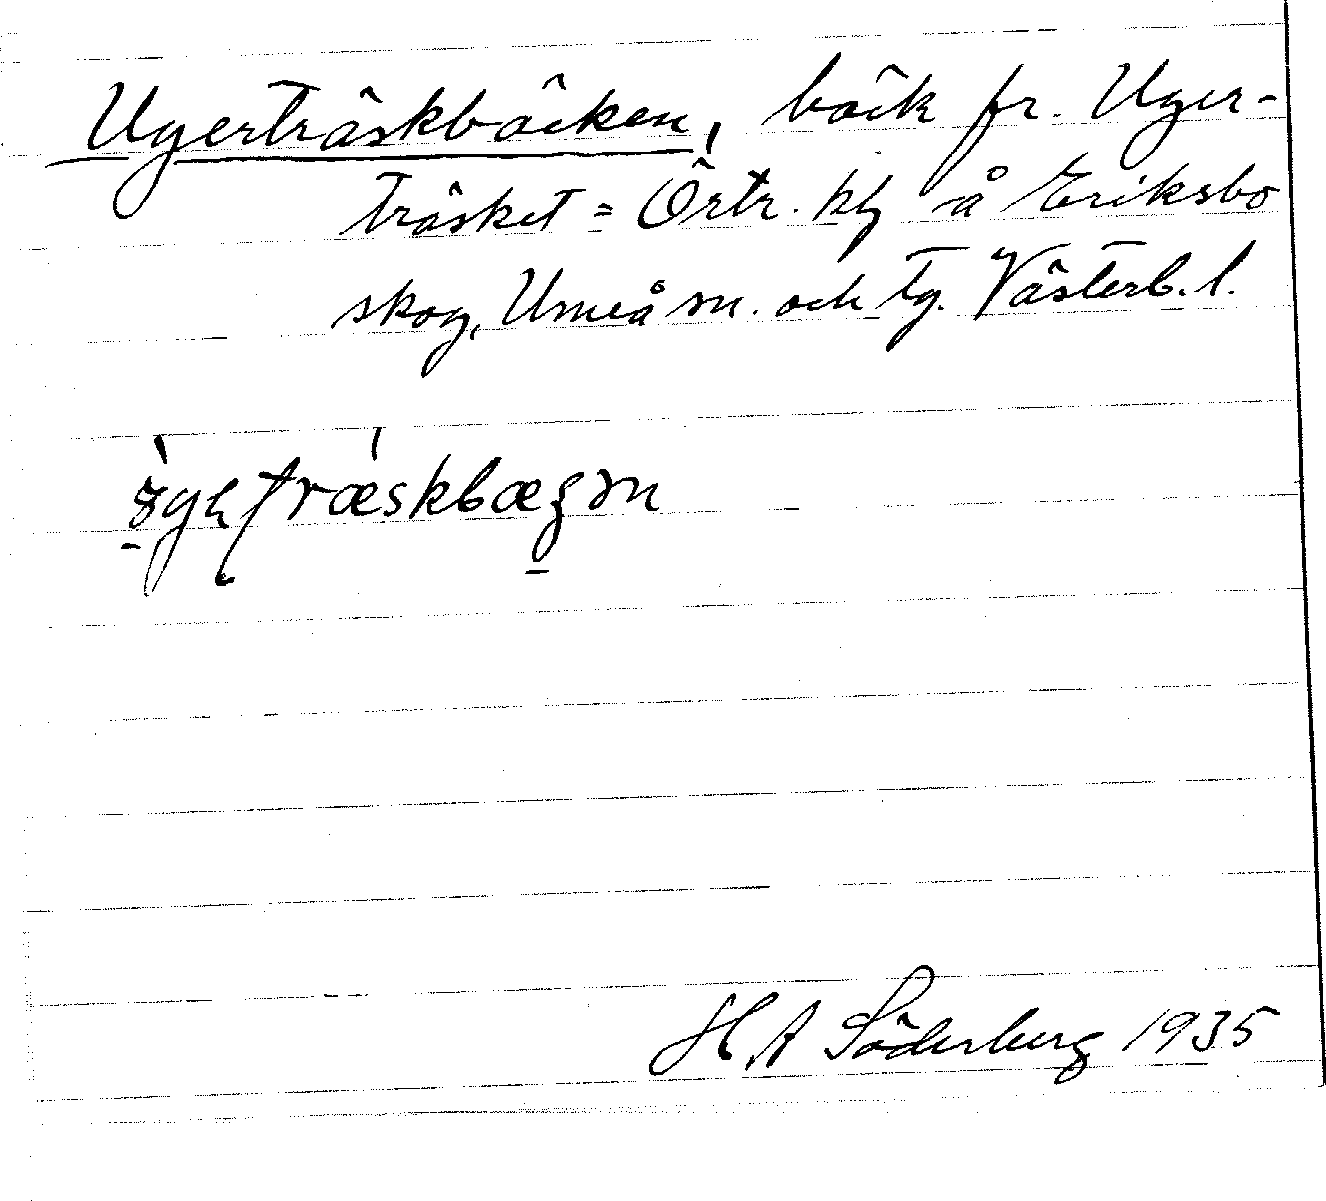 Ugerträskbäcken, bäck fr. Uger-
träsket = Örtr. kbl å Eriksbo
skog, Umeå sn. och tg. Västerb. l.
H A Söderberg 1935